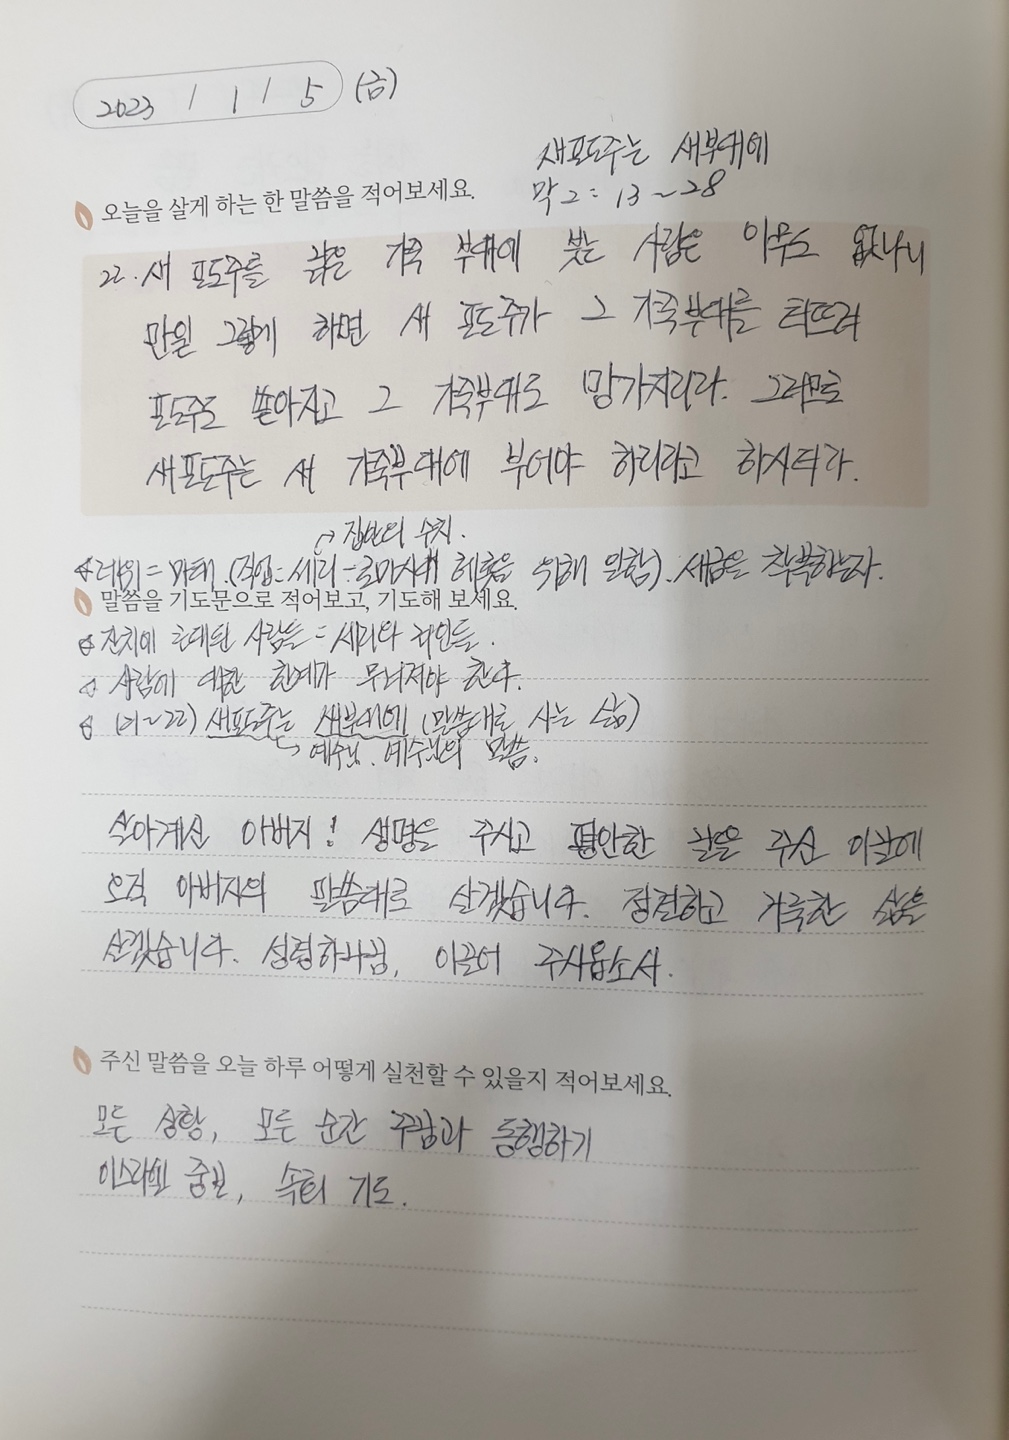 2023 / 1 / 5 (금)
새포도주는 새부대에
막2: 13~28
오늘을 살게 하는 한 말씀을 적어보세요.
22. 새 포도주를 낡은 가죽 부대에 붓는 사람은 아무도 없나니
만일 그렇게 하면 새 포도주가 그 가죽부대를 터뜨려
포도주도 쏟아지고 그 가죽부대도 망가지리라. 그러므로
새포도주는 새 가죽부대에 부어야 하리라고 하시더라.
집안의 수치.
레위 = 마태. (직업 = 세리 - 로마시대 헤롯을 위해 일함). 세금을 착복하는자.
말씀을 기도문으로 적어보고, 기도해 보세요.
잔치에 초대된 사람들 = 세리와 죄인들.
사람에 대한 한계가 무너져야 한다.
(21~22) 새포도주는 새부대에 (말씀대로 사는 삶)
예수님. 예수님의 말씀.
살아계신 아버지! 생명을 주시고 평안한 날을 주신 이날에
오직 아버지의 말씀대로 살겠습니다. 정결하고 거룩한 삶을
살겠습니다. 성령하나님, 이끌어 주시옵소서.
주신 말씀을 오늘 하루 어떻게 실천할 수 있을지 적어보세요.
모든 상황, 모든 순간 주님과 동행하기
이스라엘 중보, 속회 기도.